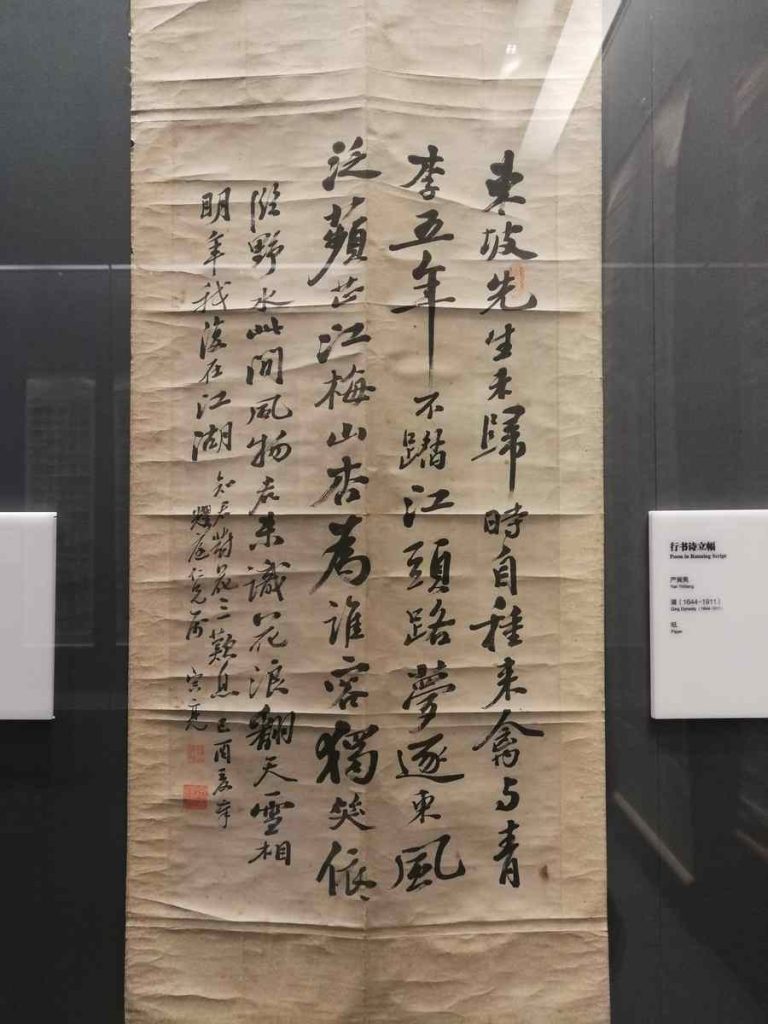 東坡先生未歸時自種来禽与青
李五年不踏江頭路夢逐東風
泛蘋芷江梅山杏為誰容獨笑依〻
臨野水此间風物君未識花浪翻天雪相
明年我復在江湖知君對花三歎息己酉夏奉
耀庭仁兄屬 寅亮
行书诗立幅
Poem in Running Script
严寅亮
Yan Yinliang
清（1644-1911）
Qing Dynasty（1644-1911）
纸
Paper